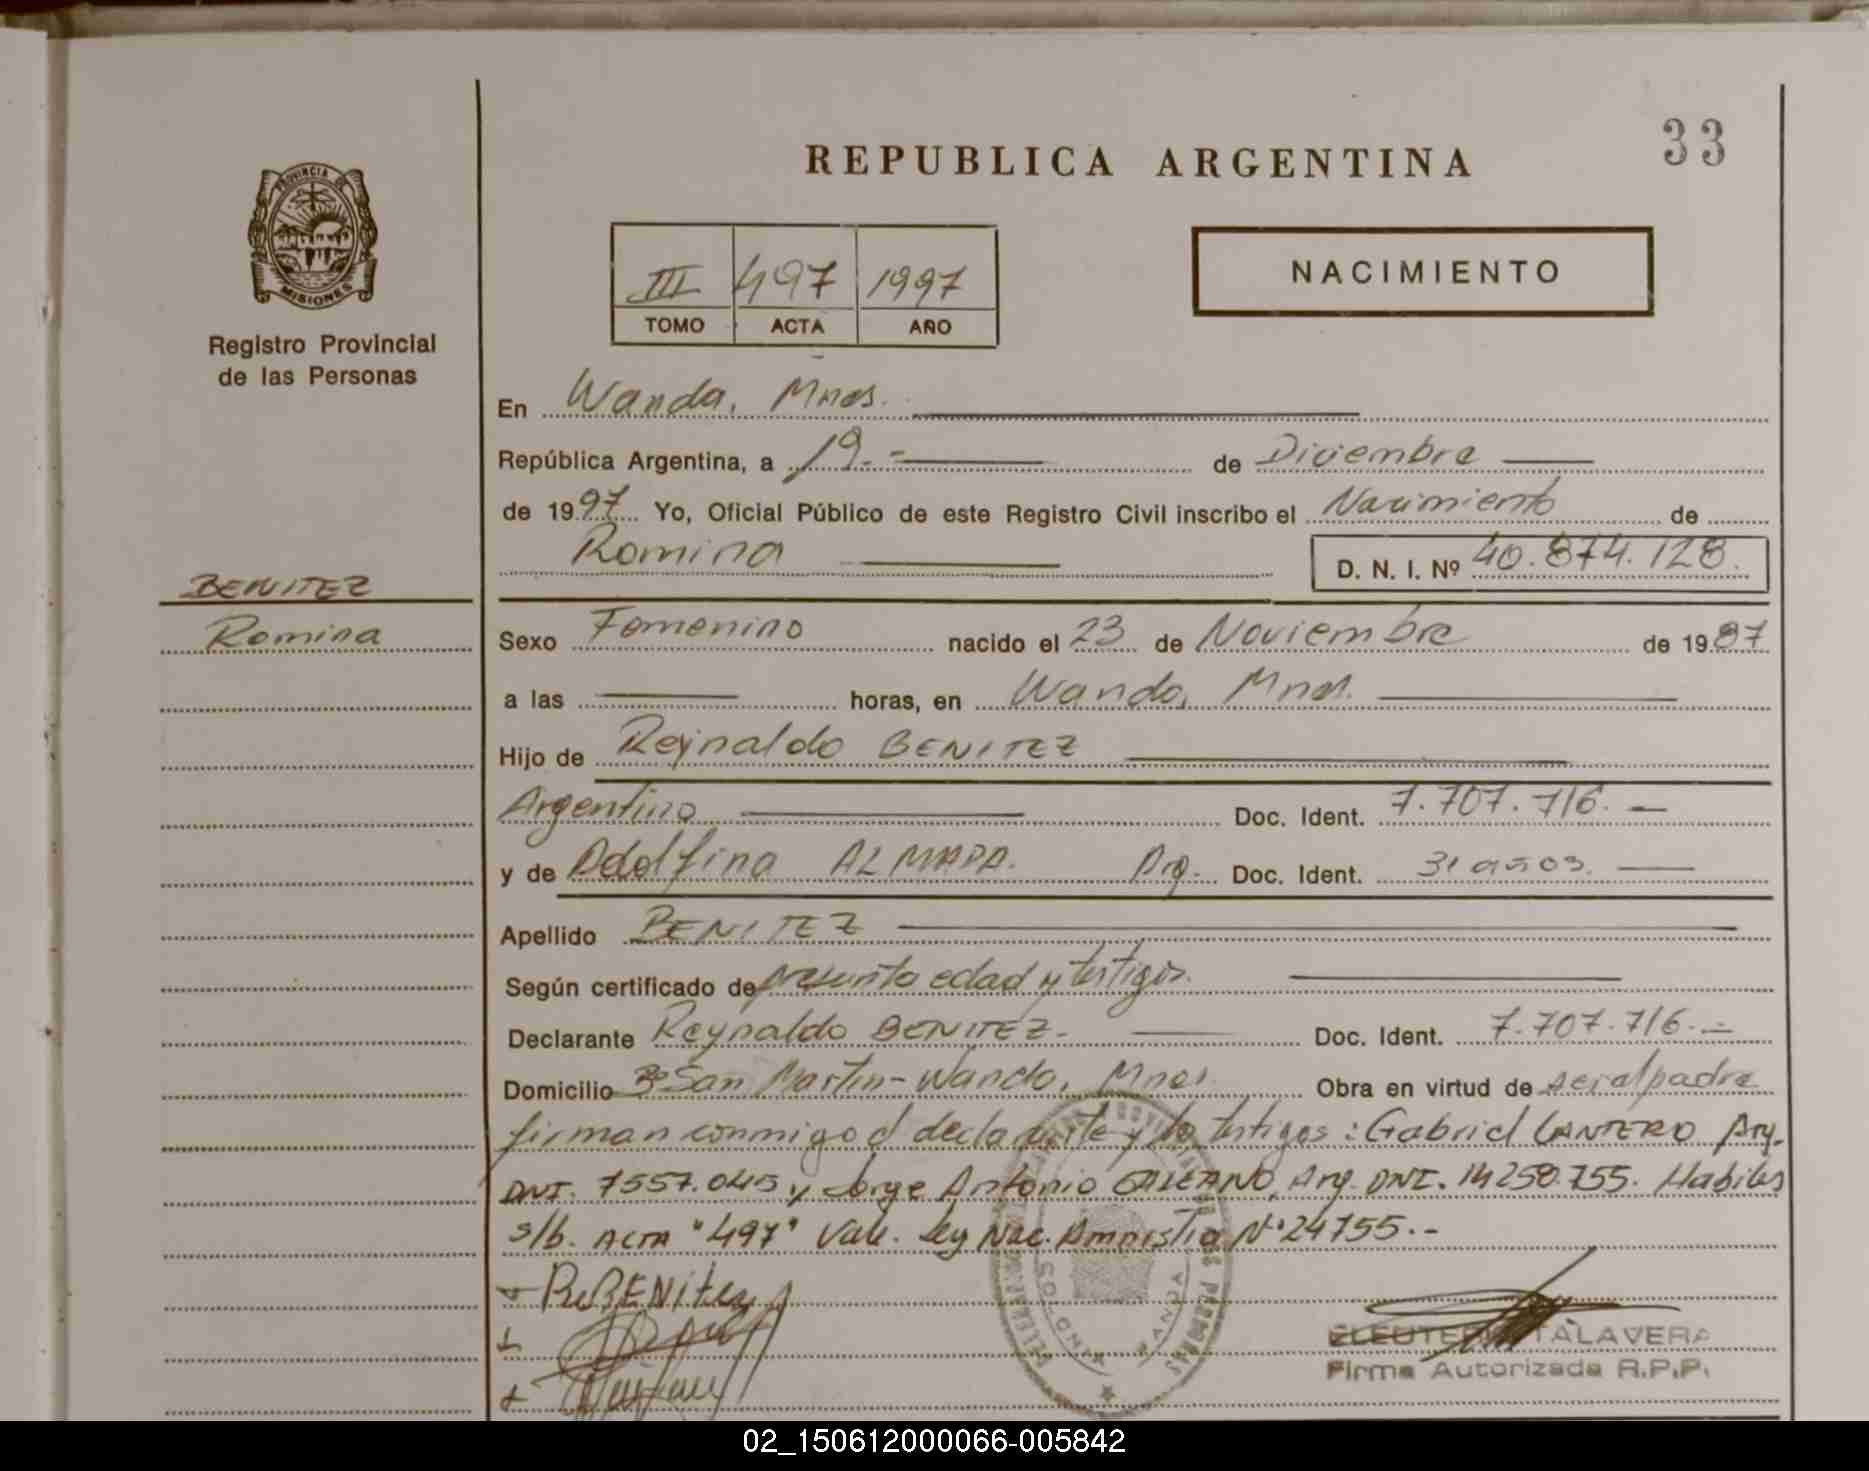 33
REPUBLICA ARGENTINA
PROVINCIA DE
MISIONES
Registro Provincial
de las Personas
III 497 1997
TOMO ACTA AÑO
NACIMIENTO
En Wanda, Mnes.
República Argentina, a 19.- de Diciembre
de 1997 Yo, Oficial Público de este Registro Civil inscribo el Nacimiento de
Romina D. N. I. Nº 40.874.128.
BENITEZ
Romina
Sexo Femenino nacido el 23 de Noviembre de 1987
a las horas, en Wanda, Mnes.
Hijo de Reynaldo BENITEZ
Argentino Doc. Ident. 7.707.716.
y de Adolfina ALMADA. Arg. Doc. Ident. 31 años.
Apellido BENITEZ
Según certificado de presunta edad y testigos.
Declarante Reynaldo BENITEZ.- Doc. Ident. 7.707.716.-
Domicilio Bº San Martín - Wanda, Mnes. Obra en virtud de ser al padre
firman conmigo el declarante y los testigos: Gabriel CANTERO Arg.
DNI. 7557.045 y Jorge Antonio GALEANO, Arg. DNI. 14250.755. Habiles
s/b. ACTA "497" Vale. Ley Nac. Amnistia Nº 24755.-
R BENitez
WANDA
ELEUTERIO TALAVERA
Firma Autorizada R.P.P.
02_150612000066-005842